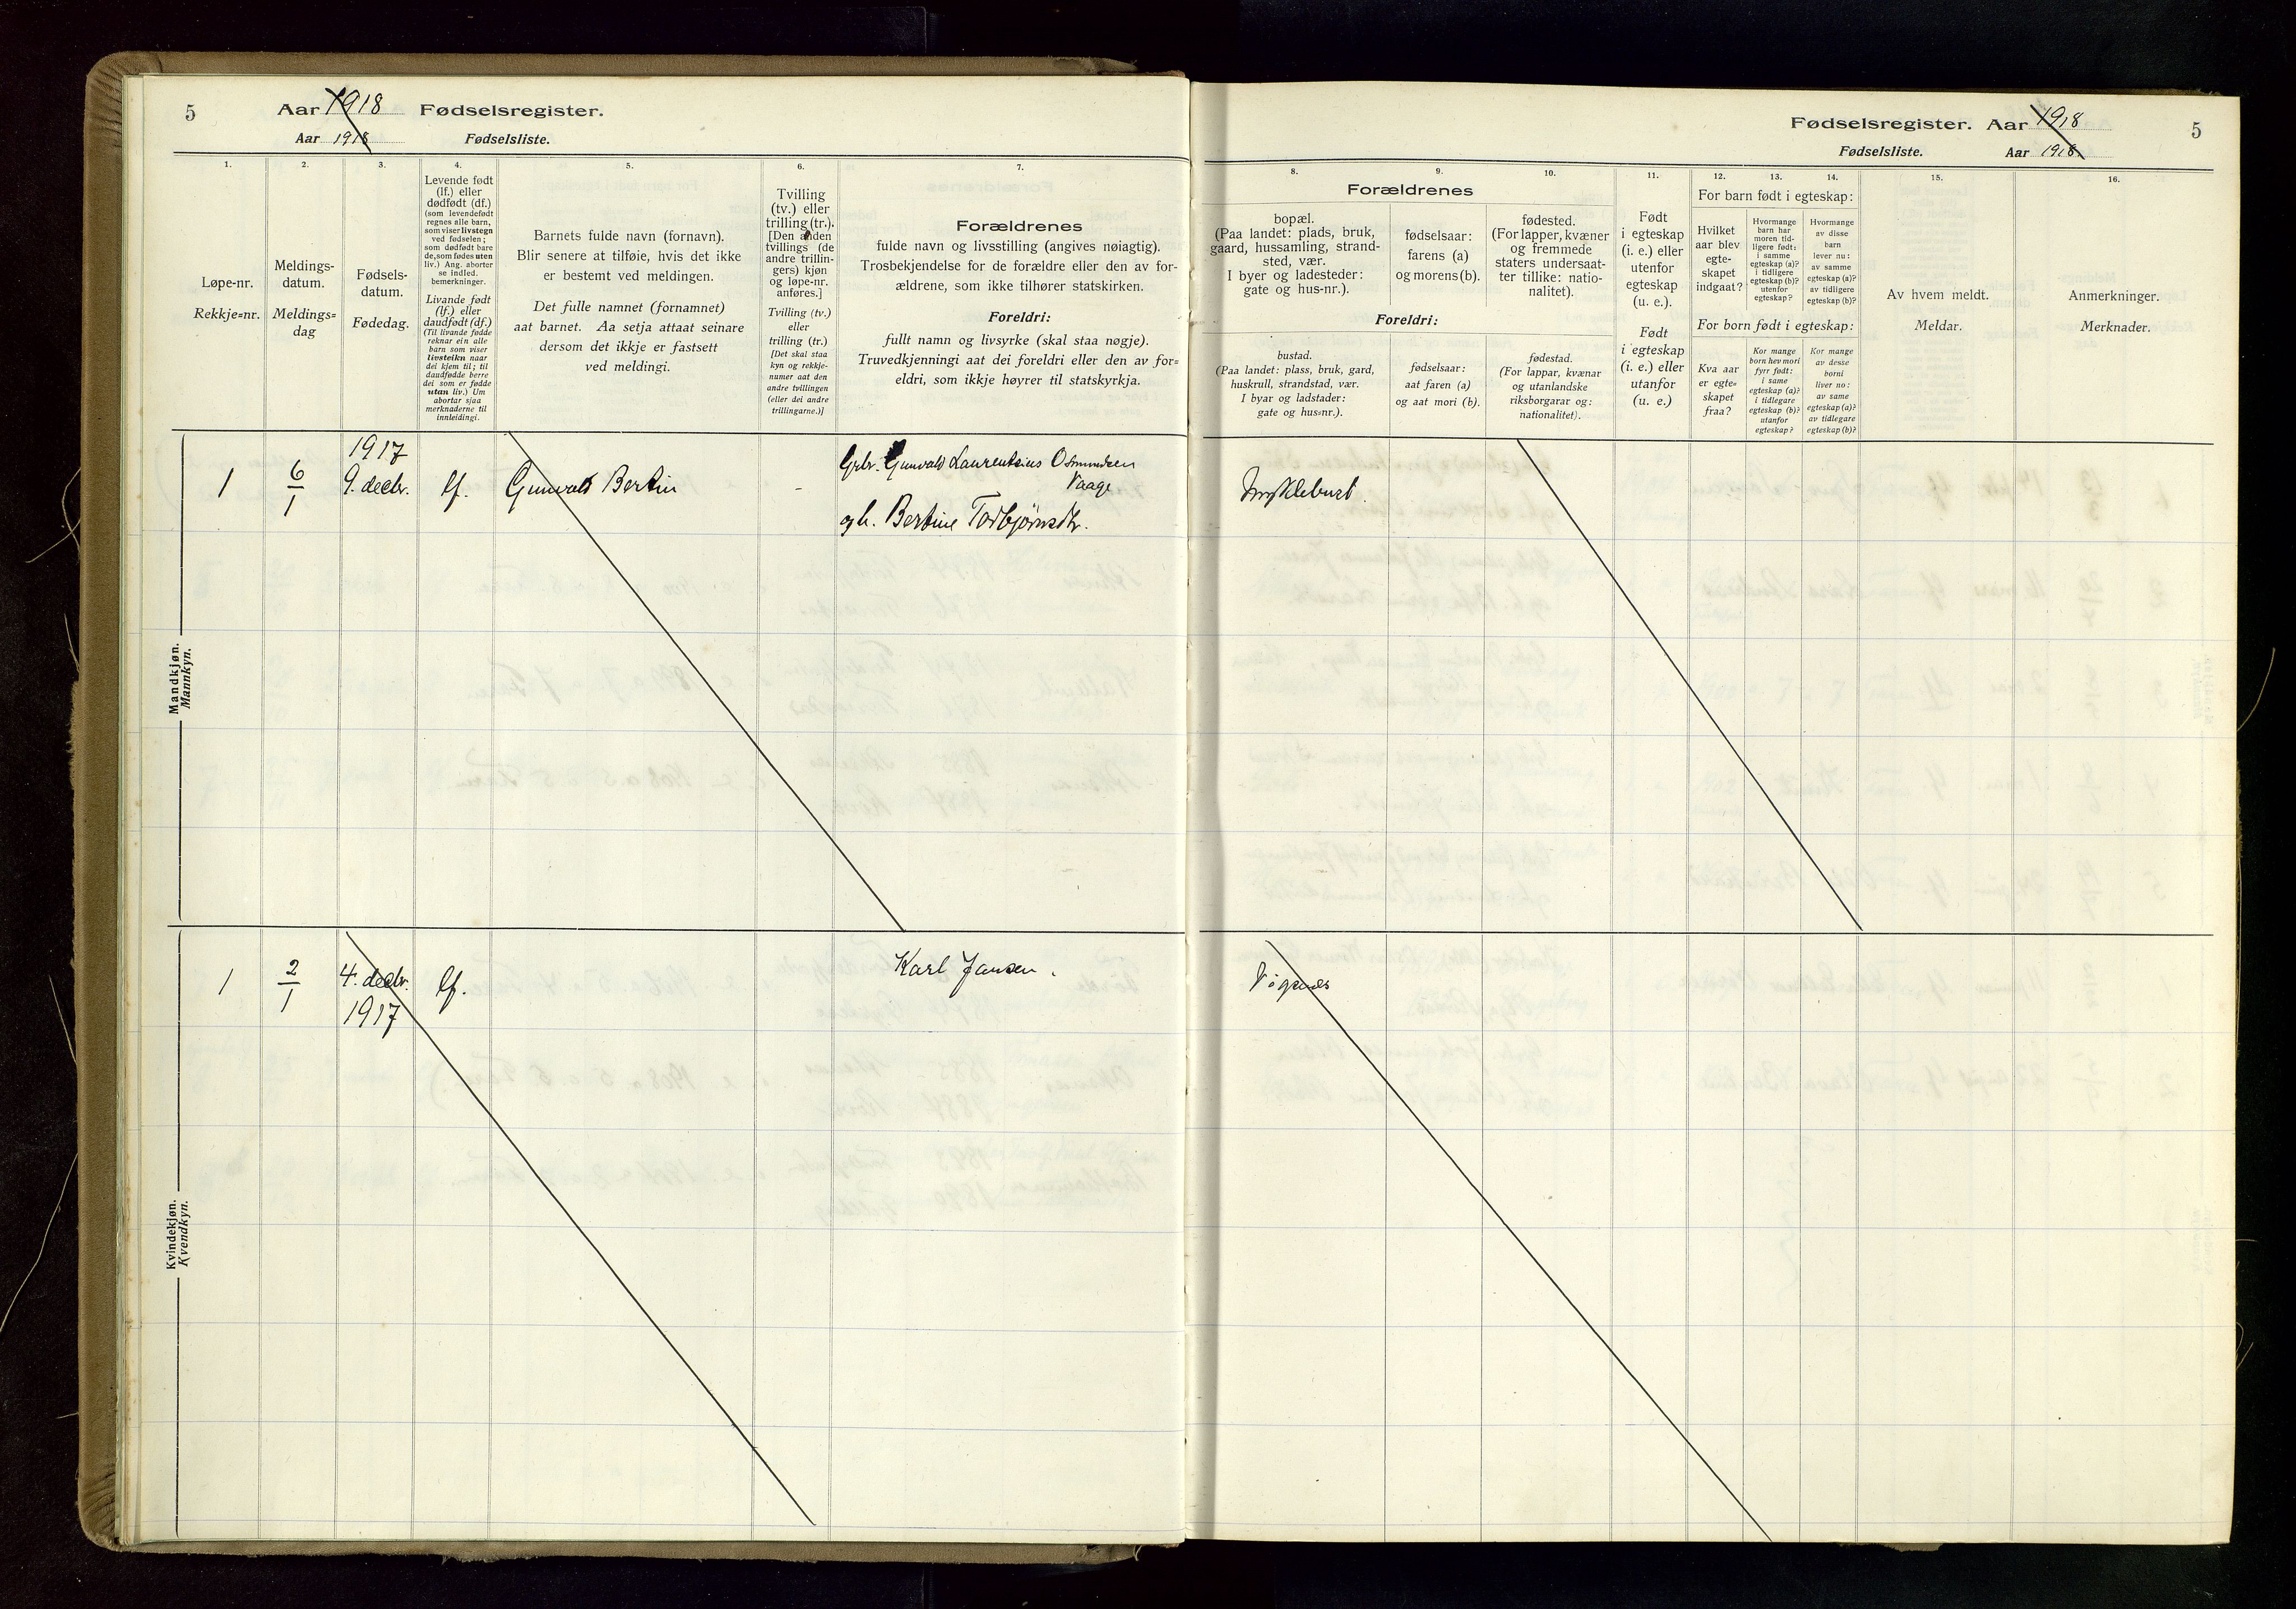 5
Aar 1918 Fødselsregister.
Aar 1918 Fødselsliste.
1.
2.
3.
4.
5.
6.
7.
Løpe-nr.
Rekkje=nr.
Meldings-
datum.
Meldings=
dag
Fødsels-
datum.
Fødedag.
Levende født
(lf.) eller
dødfødt (df.)
(som levendefødt
regnes alle barn,
som viser livstegn
ved fødselen;
som dødfødt bare
de, som fødes uten
liv.) Ang. aborter
se indled.
bemerkninger.
Livande født
(lf.) eller
daudfødt (df.)
(Til livande fødde
reknar ein alle
barn som viser
livsteikn naar
dei kjem til; til
daudfødde berre
dei som er fødde
utan liv.) Um
abortar sjaa
merknaderne til
innleidingi.
Barnets fulde navn (fornavn).
Blir senere at tilføie, hvis det ikke
er bestemt ved meldingen.
Det fulle namnet (fornamnet)
aat barnet. Aa setja attaat seinare
dersom det ikkje er fastsett
ved meldingi.
Tvilling
(tv.) eller
trilling (tr.).
[Den anden
tvillings (de
andre trillin-
gers) kjøn
og løpe-nr.
anføres.]
Tvilling (tv.)
eller
trilling (tr.)
[Det skal staa
kyn og rekkje-
numer aat den
andre tvillingen
(eller dei andre
trillingarne.)]
Forældrenes
fulde navn og livsstilling (angives nøiagtig).
Trosbekjendelse for de forældre eller den av for-
ældrene, som ikke tilhører statskirken.
Foreldri:
fullt namn og livsyrke (skal staa nøgje).
Truvedkjenningi aat dei foreldri eller den av for=
eldri, som ikkje høyrer til statskyrkja.
Mandkjøn.
Mannkyn.
1
6
1
1917
9. decbr.
lf.
Gunvald Bertin
-
Grbr. Gunvald Laurentzius Osmundsen
Vaage
og h. Bertine Torbjørnsdtr.
Kvindekjøn.
Kvendkyn.
1
2
1
4. decbr.
1917
lf.
Karl Jansen.
Fødselsregister. Aar 1918
5
Fødselsliste. Aar 1918.
8.
9.
10.
11.
12.
13.
14.
15.
16.
Forældrenes
bopæl.
(Paa landet: plads, bruk,
gaard, hussamling, strand-
sted, vær.
I byer og ladesteder:
gate og hus-nr.).
fødselsaar:
farens (a)
og morens (b).
fødested.
(For lapper, kvæner
og fremmede
staters undersaat-
ter tillike: natio-
nalitet).
Foreldri:
bustad.
(Paa landet: plass, bruk, gard,
huskrull, strandstad, vær.
I byar og ladstader:
gate og hus=nr.).
fødselsaar:
aat faren (a)
og aat mori (b).
fødestad.
(For lappar, kvænar
og utanlandske
riksborgarar og:
nationalitet).
Født
i egteskap
(i. e.) eller
utenfor
egteskap
(u. e.).
Født
i egteskap
(i. e.) eller
utanfor
(u. e.)
For barn født i egteskap:
Hvilket
aar blev
egte-
skapet
indgaat?
Hvormange
barn har
moren tid-
ligere født:
i samme
egteskap (a)?
i tidligere
egteskap (b)?
utenfor
egteskap?
Hvormange
av disse
barn
lever nu:
av samme
egteskap (a)?
av tidligere
egteskap (b)?
For born født i egteskap:
Kva aar
er egte=
skapet
fraa?
Kor mange
born hev mori
fyrr født:
i same
egteskap (a)?
i tidlegare
egteskap (b)?
utanfor
egteskap?
Kor mange
av desse
borni
liver no:
av same
egteskap (a)?
av tidlegare
egteskap (b)?
Av hvem meldt.
Meldar.
Anmerkninger.
Merknader.
Myklebust.
Vignes